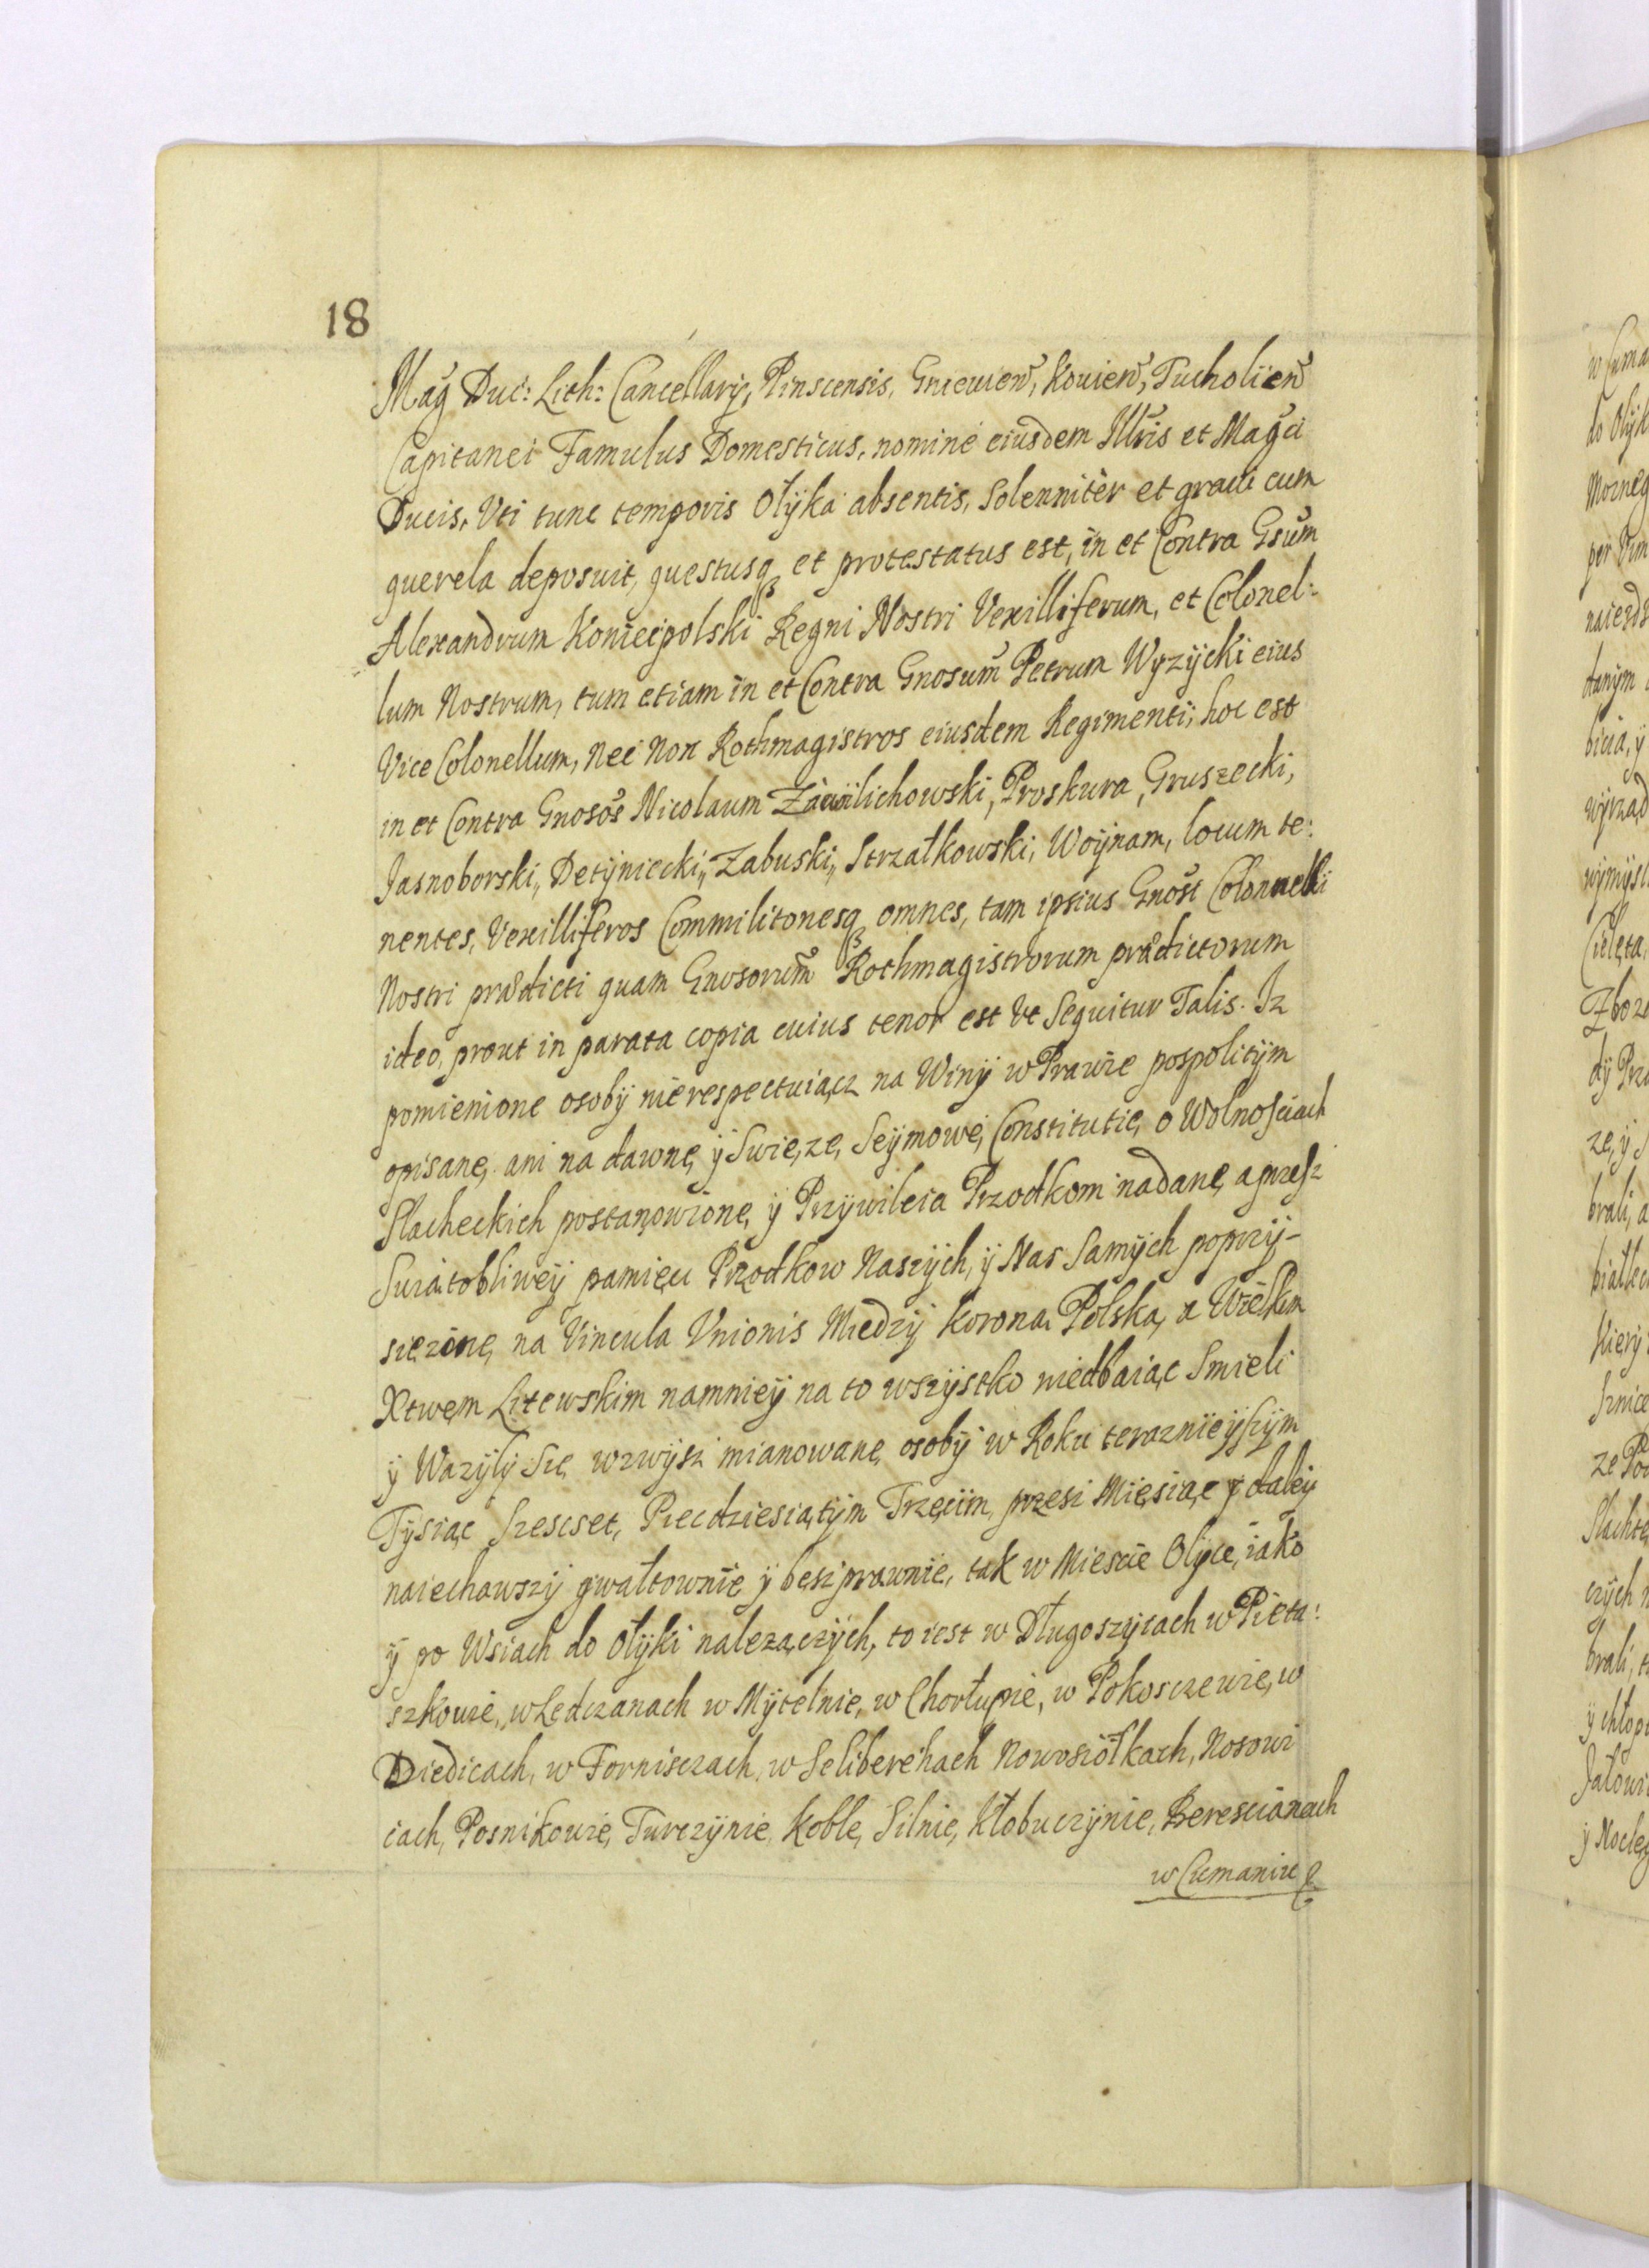 18
Mag̃ Duc: Lith: Cancellarij, Pinscensis, Gniewieñ, Kowień, Tucholieñ
Capitanei Famulus Domesticus, nomine eiusdem Illr̃is et Mag̃ci
Ducis, Uti tunc temporis Olÿka absentis, Solenniter et graui cum
querela deposuit, questusq3 et protestatus est, in et Contra Gsũm
Alexandrum Koniecpolski Regni Nostri Vexilliferum, et Colonel:
lum Nostrum, tum etiam in et Contra Gnosum̃ Petrum Wyzÿcki eius
Vice Colonellum, Nec Non Rothmagistros eiusdem Regimenti, hoc est
in et Contra Gnosõs Nicolaum Zacwilichowski, Proskura, Gruszecki,
Jasnoborski, Detÿniecki, Zabuski, Strzałkowski, Woÿnam, locum te:
nentes, Vexilliferos Commilitonesq3 omnes, tam ipsius Gnosi Colonnelli
Nostri prædicti quam Gnosorum̃ Rothmagistrorum prædictorum
ideo, prout in parata copia cuius tenor est Ut Sequitur Talis. Iz
pomienione osobÿ nierespectuiącz na Winÿ w Prawie pospolitÿm
opisane, ani na dawne, ÿ Swieze, Seÿmowe, Constitutie, o Wolnosciach
Slacheckich postanowione, ÿ Przÿwileia Przodkom nadane, a przesz
Swiątobliweÿ pamięci Przodkow Naszÿch, ÿ Nas Samÿch poprzÿ-
sięzone, na Vincula Unionis Miedzÿ Koroną Polską, a Wielkim
Xtwem Litewskim namnieÿ na to wszÿstko niedbaiąc Smieli
ÿ Wazÿlÿ Się wzwÿsz mianowane osobÿ w Roku teraznieÿszÿm
Tÿsiąc Szescset, Piecdziesiątÿm Trzecim, przesz Miesiąc ÿ daleÿ
naiechawszÿ gwałtownie ÿ besz prawnie, tak w Miescie Olÿce, iako
ÿ po Wsiach do Ołÿki nalezączÿch, to iest w Długoszÿcach w Pieta:
szkowie, w Ledczanach w Mÿtelnie, w Chorłupie, w Pokosczewie, w
Diedicach, w Fornisczach, w Seliberehach Nowosiółkach, Nosowi
cach, Posnikowie, Turczÿnie, Koble, Silnie, Kłobuczÿnie, Berescianach
w Cumaniu